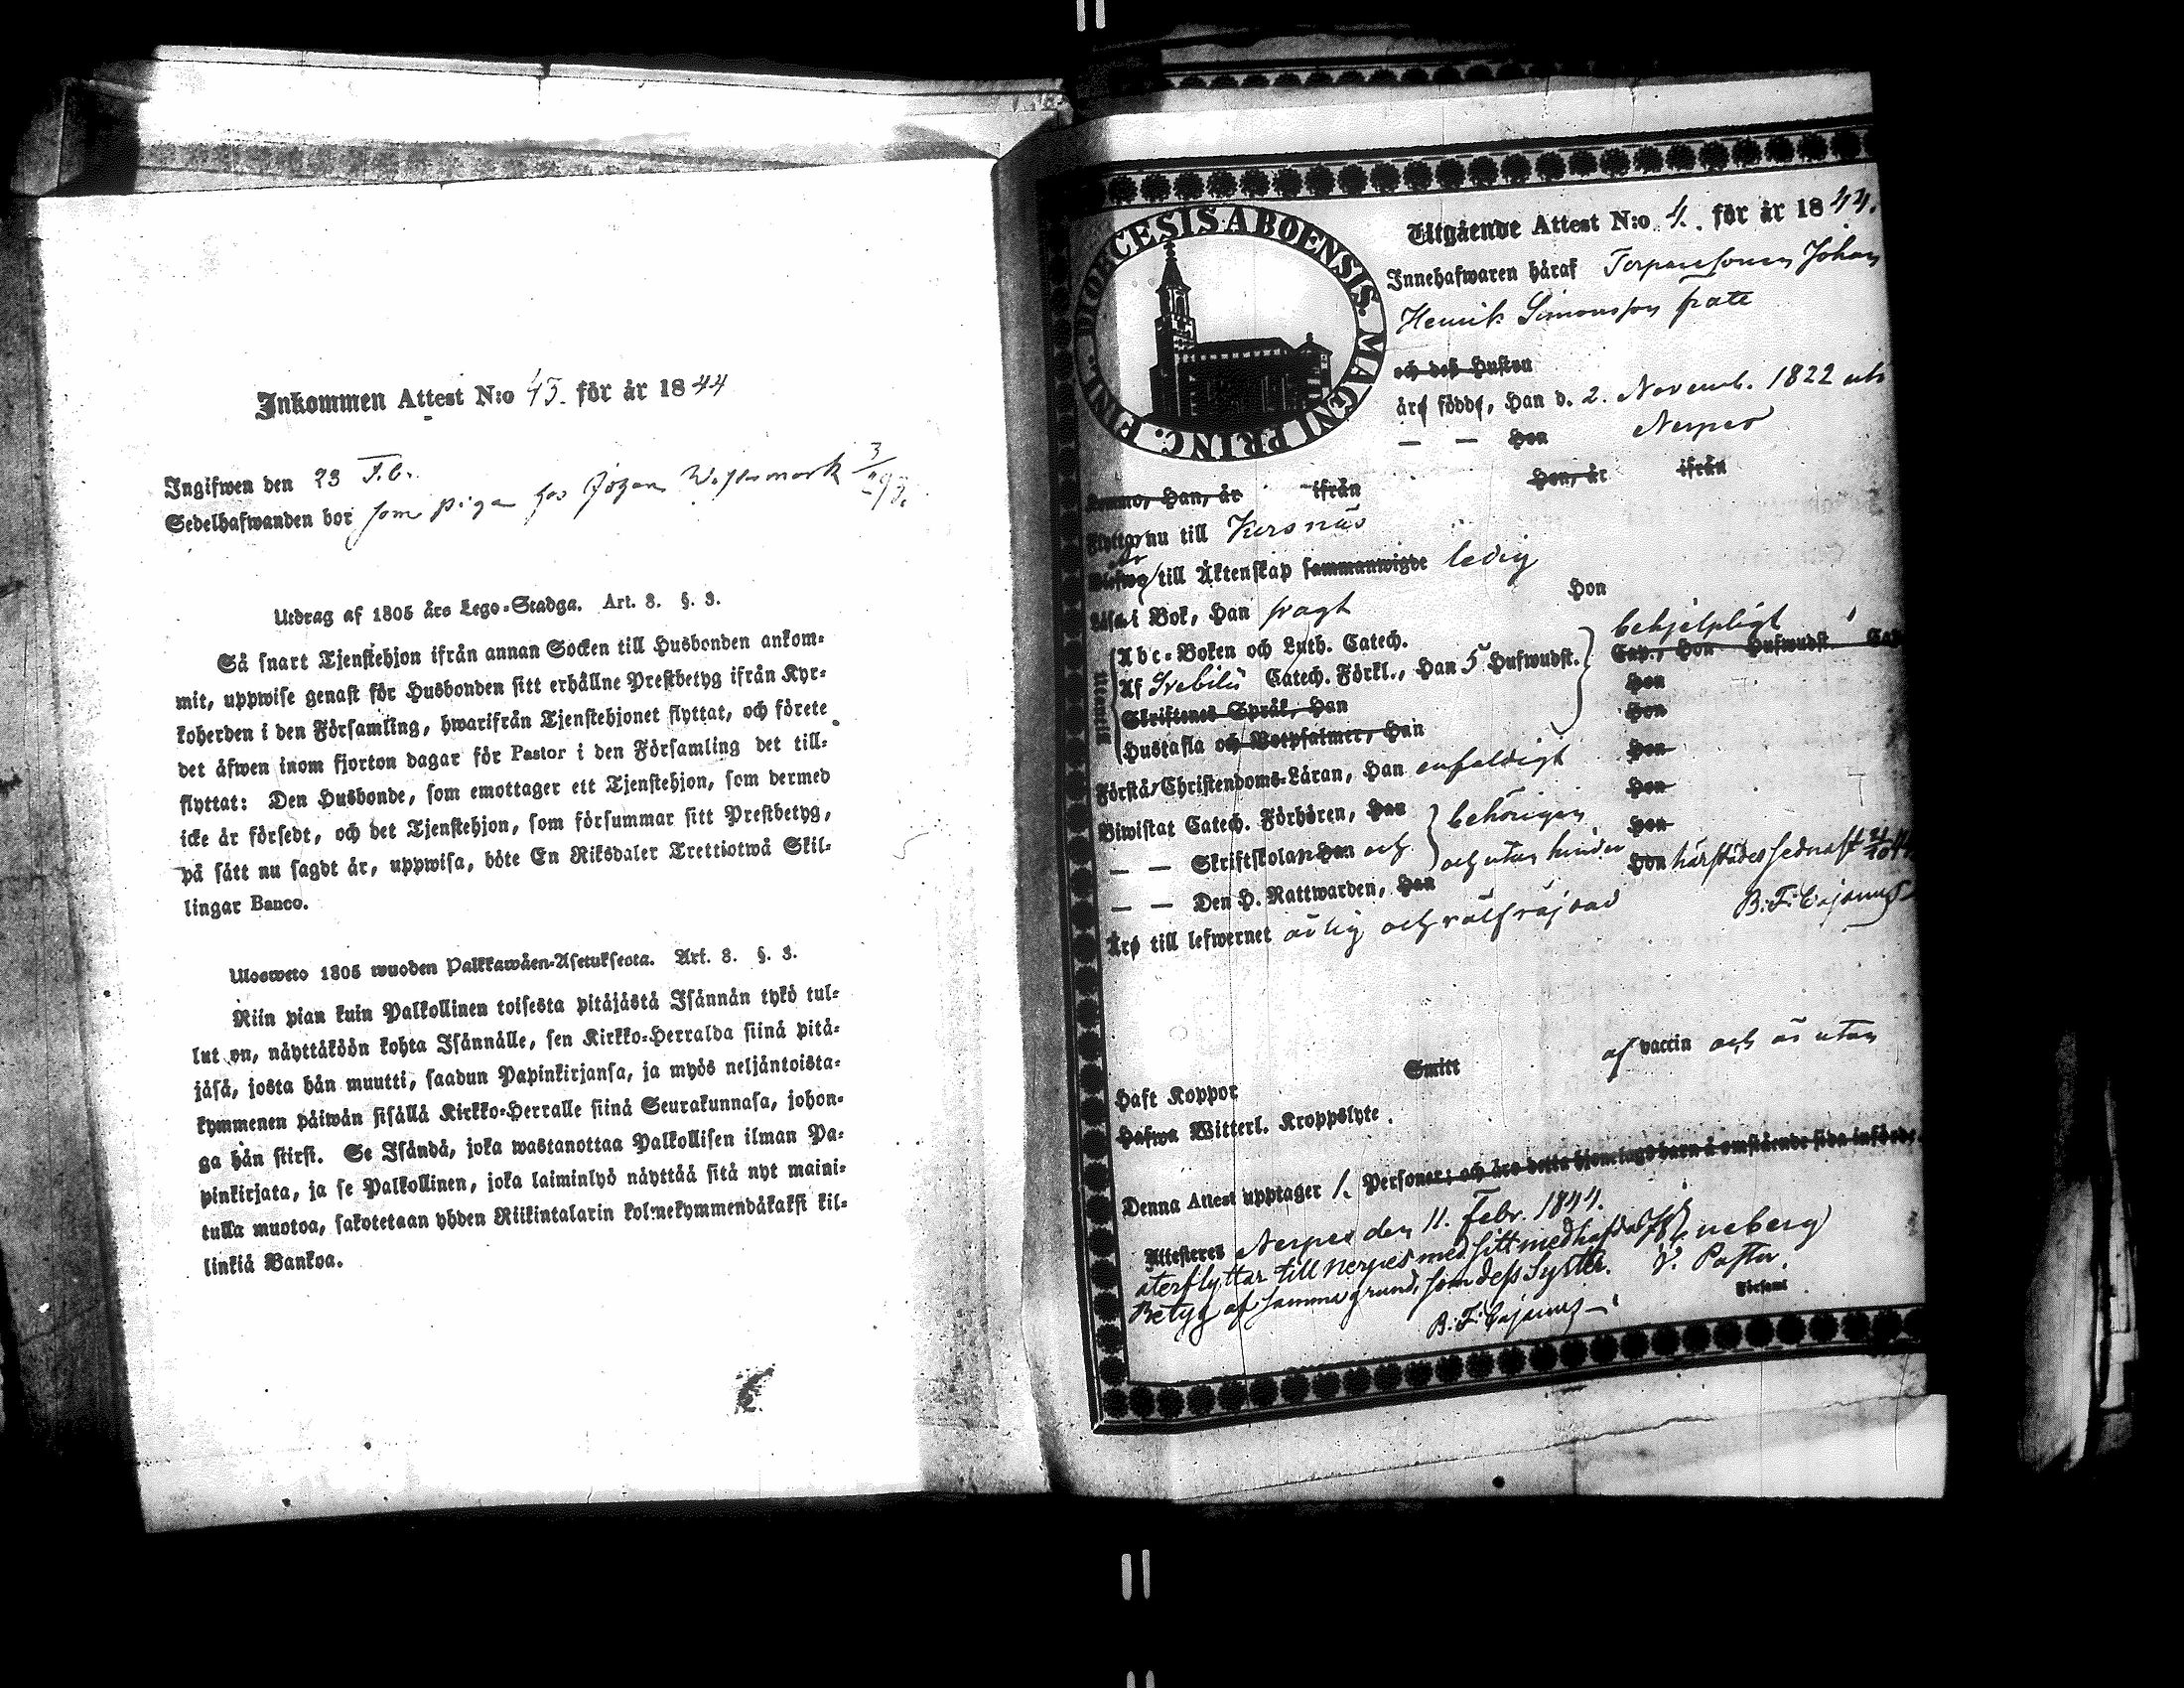 Inkommen Attest N:o 43. för år 1844
Ingifwen den 23 Febr.
Sedelhafwanden bor som piga hos Johan 3/293.
Utdrag af 1805 års Lego-Stadga. Art. 8. §. 3.
Så snart Tjenstehjon ifrån annan Socken till Husbonden ankom-
mit, uppwise genast för Husbonden sitt erhållne Prestbetyg ifrån Kyr-
koherden i den Församling, hwarifrån Tjenstehjonet flyttat, och förete
det äfwen inom fjorton dagar för Pastor i den Församling det till-
flyttat: Den Husbonde, som emottager ett Tjenstehjon, som dermed
icke är försedt, och det Tjenstehjon, som försummar sitt Prestbetyg,
på sätt nu sagdt är, uppwisa, böte En Riksdaler Trettiotwå Skil-
lingar Banco.
Ulosweto 1805 wuoden Palkkawäen-Asetuksesta. Art. 8. §. 3.
Niin pian kuin Palkollinen toisesta pitäjästä Isännän tykö tul-
lut on, näyttäköön kohta Isännälle, sen Kirkko-Herralda siinä pitä-
jäsä, josta hän muutti, saadun Papinkirjansa, ja myös neljäntoista-
kymmenen päiwän sisällä Kirkko-Herralle siinä Seurakunnasa, johon-
ga hän siirsi. Se Isändä, joka wastanottaa Palkollisen ilman Pa-
pinkirjata, ja se Palkollinen, joka laiminlyö näyttää sitä nyt maini-
tulla muotoa, sakotetaan yhden Riikintalarin kolmekymmendäkaksi kil-
linkiä Bankoa.
DIOECESIS ABOENSIS. MAGNI PRINC. FINL.
Utgående Attest N:o 4. för år 1844.
Innehafwaren häraf Torparesonen Johan
Henrik Simonsson
och deß Hustru
äro födde, Han d. 2. Novemb. 1822 uti
— — Hon Nerpes
Komno, Han, år ifrån Hon, år ifrån
Flyttar nu till Korsnäs
är
Blefwo till Äktenskap sammanwigde ledig
Läsa i Bok, Han svagt Hon
Utantill
Abc-Boken och Luth. Catech. behjelpligt
Af Svebilii Catech. Förkl., Han 5 Hufwudst. Cap., Hon Hufwudst. Cap.
Skriftenes Språk, Han Hon
Hustafla och Botpsalmer, Han Hon
Förstå Christendoms-Läran, Han enfaldigt Hon
Biwistat Catech. Förhören, Han behörigen Hon
— — Skriftskolan Han och Hon
— — Den H. Nattwarden, Han och utan hinder Hon härstädes sednast
Äro till lefwernet ärlig och välfräjdad B. F. Cajanus
Haft Koppor Smitt af vaccin och är utan
Hafwa Witterl. Kroppslyte.
Denna Attest upptager 1. Personer; och äro detta hjonelags barn å omstående sida införde.
Attesteras Nerpes den 11. Febr. 1844.
återflyttar till Nerpes med sitt medhafda
Betyg af samma grund, som deß Syster. V. Pastor.
B. F. Cajanus Församl